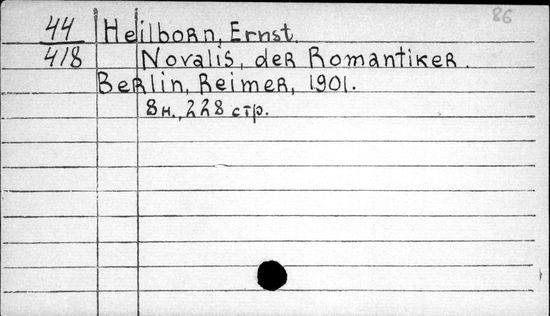 86
44 Heilborn, Ernst.
418 Novalis, der Romantiker.
Berlin, Reimer, 1901.
8н., 228 стр.